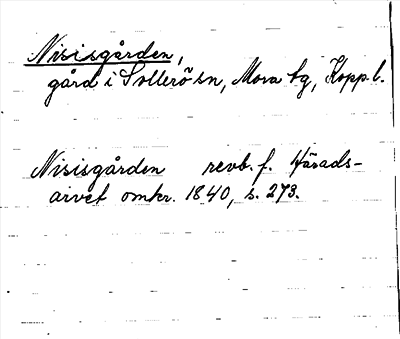 Nisisgården,
gård i Sollerö sn, Mora tg, Kopp. l.
Nisisgården revb. f. Härads-
arvet omkr. 1840, s. 273.